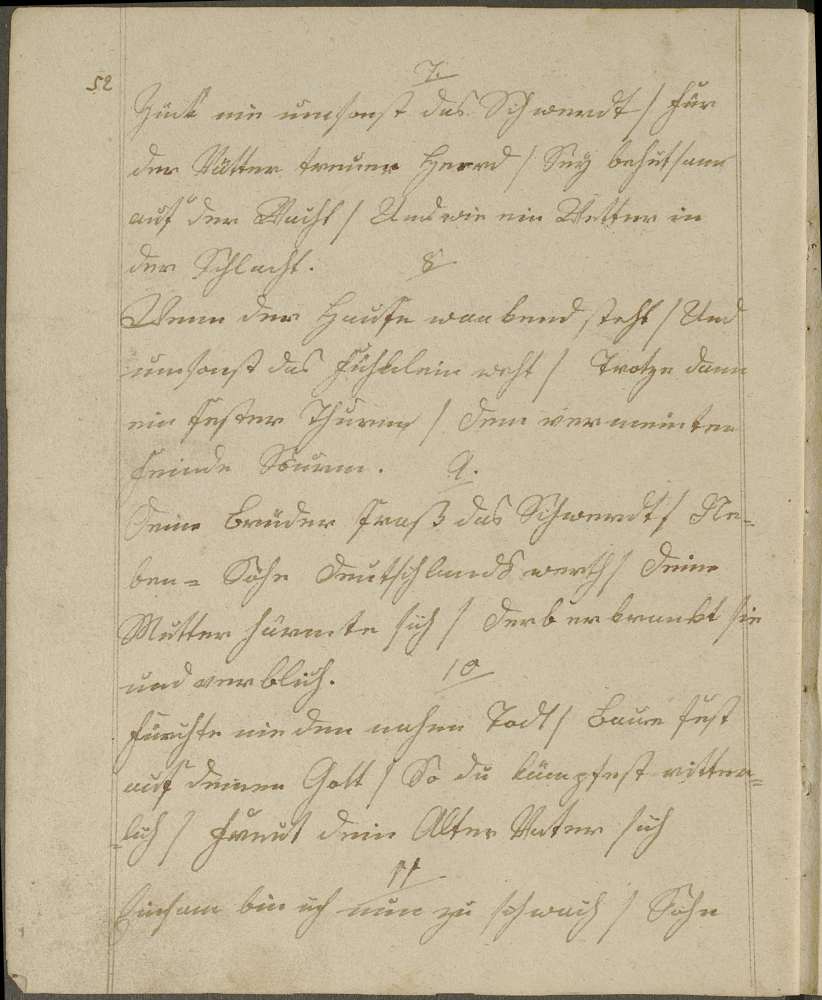 52
7.
Zück nie umsonst das Schwerdt / Für
der Vätter treuen Heerd / Sey behutsam
auf der Wacht / Und wie ein Wetter in
der Schlacht.
8
Wenn der Haufe wankend steht / Und
umsonst das Fähnlein weht / Trotze dann
ein fester Thurm / dem vermeinten
Feinde Sturm.
9.
Deine Brüder fraß das Schwerdt / Ne=
ben= Söhn Deutschlands werth / deine
Mutter härmte sich / Darb erkrankt sie
und verblich.
10
Fürchte nie den nahen Todt / Baue fest
auf deinen Gott / So du kämpfest ritter=
=lich / Freut dein Alter Vater sich
11
Einsam bin ich nun zu schwach / Sohn